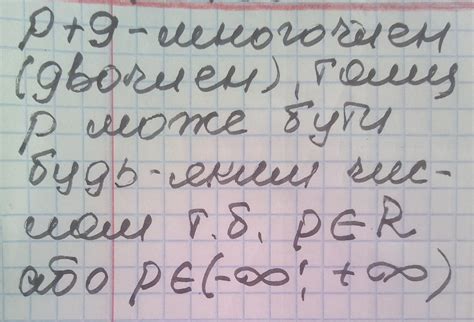 p+9-многочлен
(двочлен), тому
p може бути
будь-яким чис-
лом т.б. p∈R
або p∈(-∞; +∞)